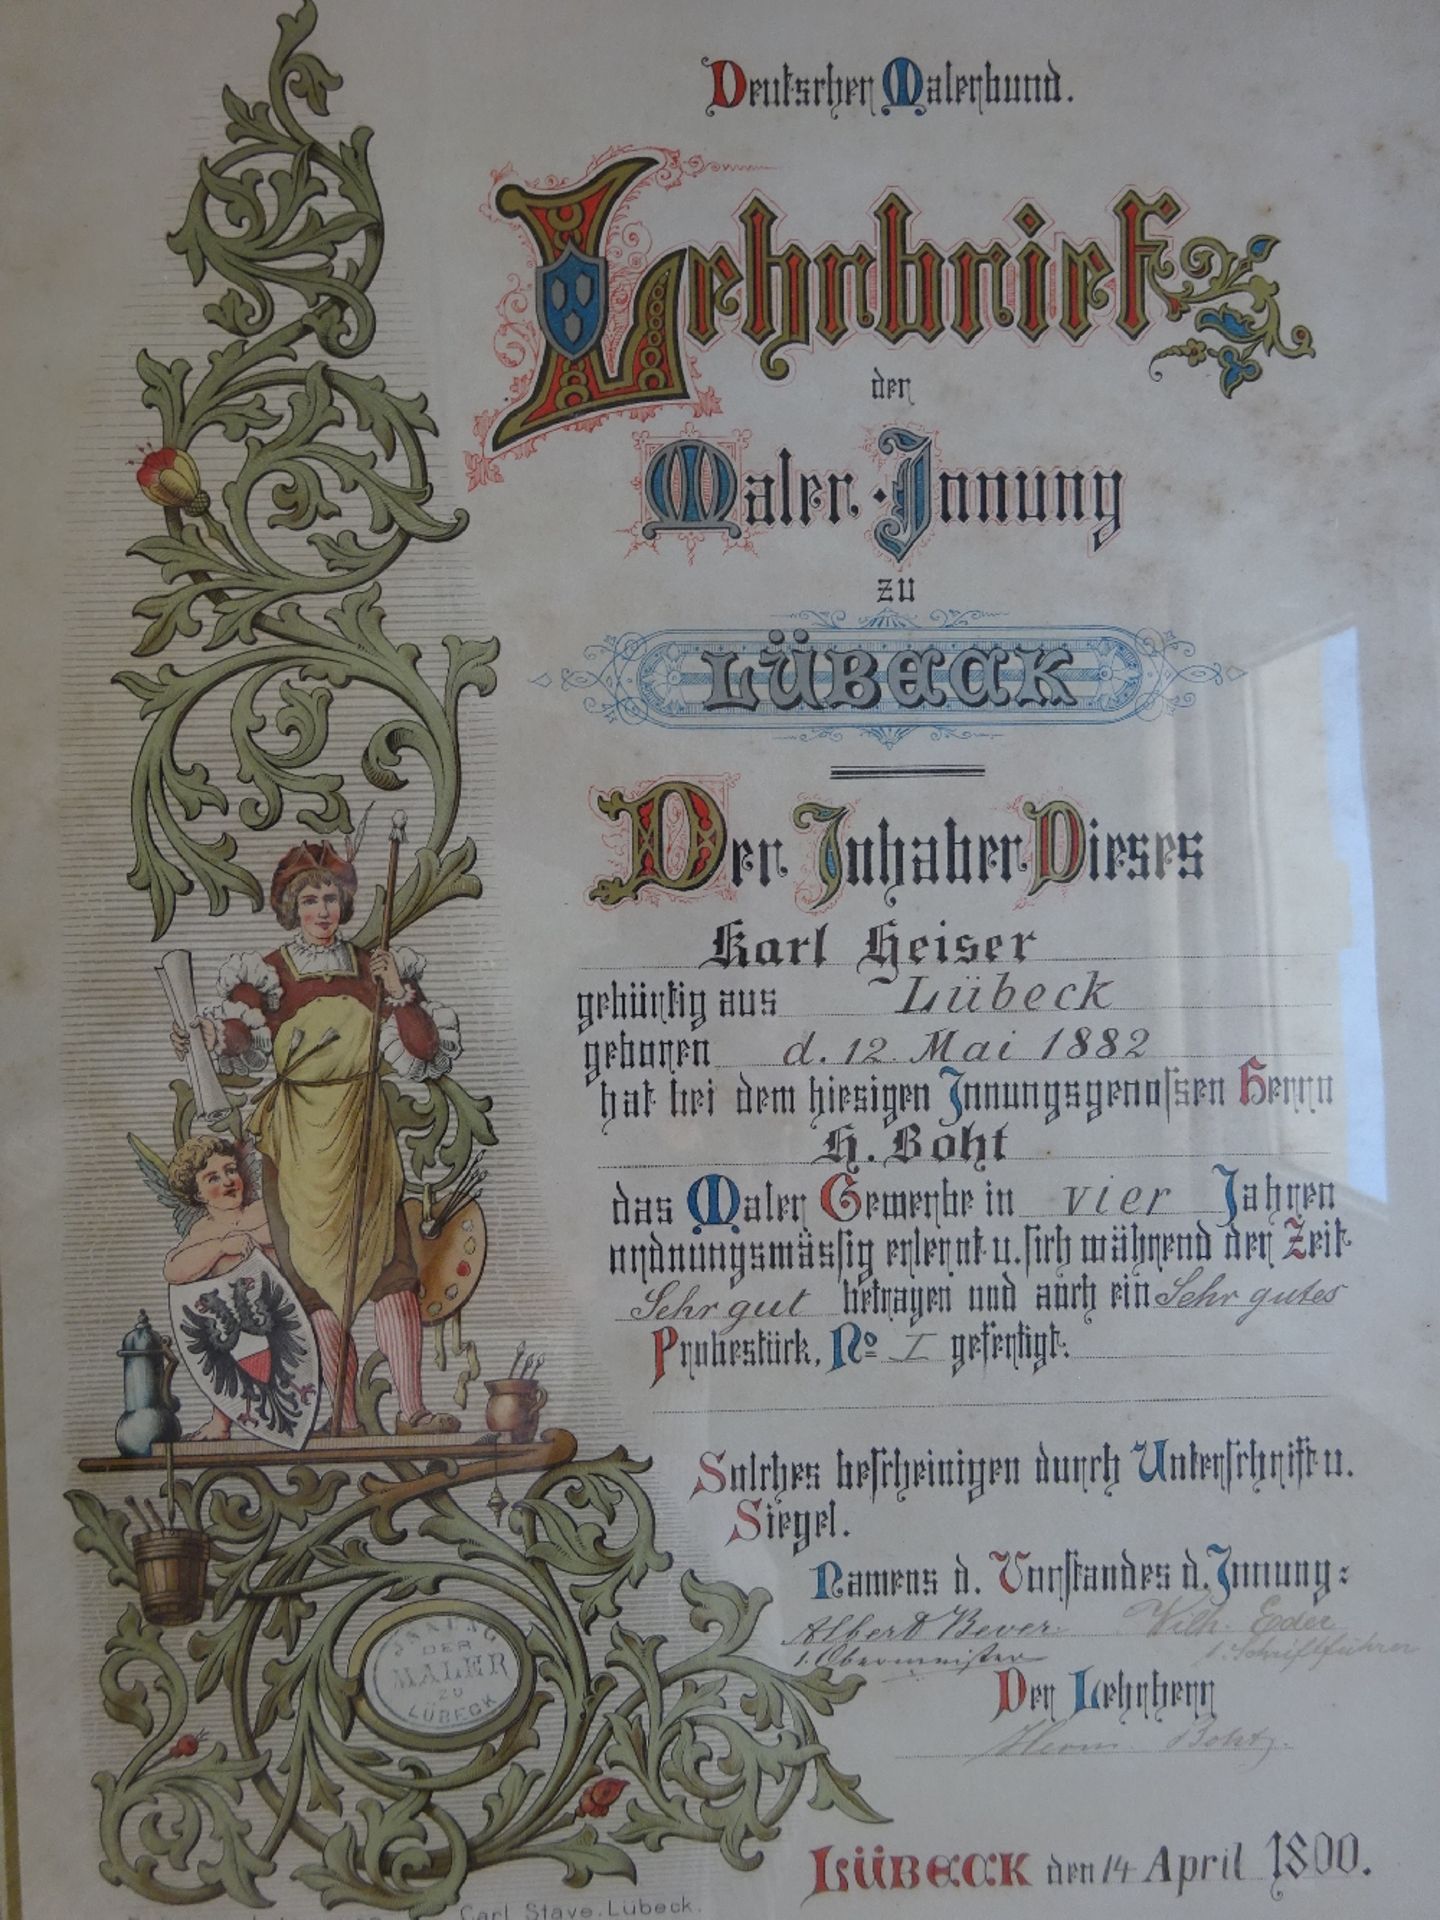 Deutscher Malerbund.
Lehrbrief
der
Maler-Innung
zu
LÜBECK
Der Inhaber Dieses
Karl Heiser
gebürtig aus Lübeck
geboren d. 12. Mai 1882
hat bei dem hiesigen Innungsgenossen Herrn
H. Boht
das Maler Gewerbe in vier Jahren
ordnungsmässig erlernt u. sich während der Zeit
Sehr gut betragen und auch ein Sehr gutes
Probestück, No I gefertigt.
Solches bescheinigen durch Unterschrift u.
Siegel.
Namens d. Vorstandes d. Innung:
Albert Bever. Wilh. Eder
1. Obermeister 1. Schriftführer
Der Lehrherr
Herm. Boht
INNUNG
DER
MALER
ZU
LÜBECK
LÜBECK den 14 April 1800.
Carl Stave. Lübeck.